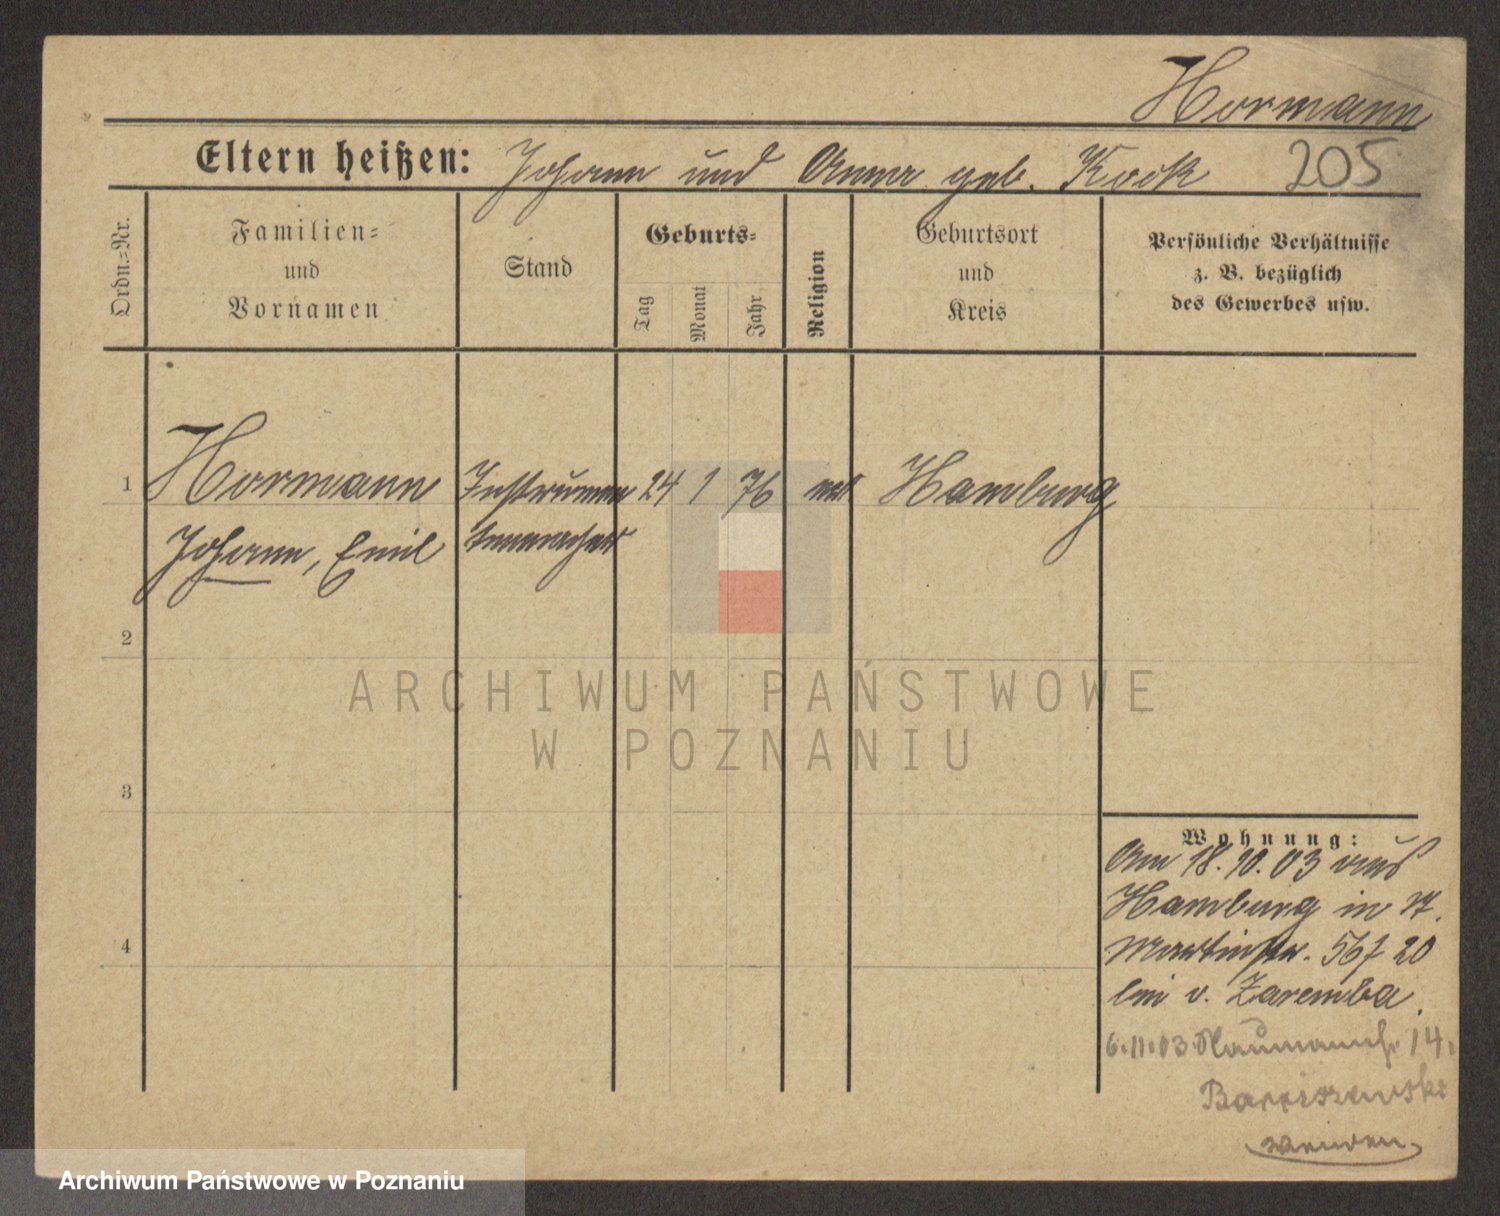 Hormann
Eltern heißen: Johann und Anna geb. Kock 205
Ordn.=Nr.
Familien=
und
Vornamen
Stand
Geburts=
Tag
Monat
Jahr
Religion
Geburtsort
und
Kreis
Persönliche Verhältnisse
z. B. bezüglich
des Gewerbes usw.
1 Hormann Instrumen 24 1 76 Hamburg
Johann, Emil tenmacher
2
3
4
Wohnung:
Am 18.10.03 aus
Hamburg in
Martinstr. 56 / 20
bei v. Zaremba.
6.11.03 Naumannstr. 14.
wenden
ARCHIWUM PAŃSTWOWE
W POZNANIU
Archiwum Państwowe w Poznaniu